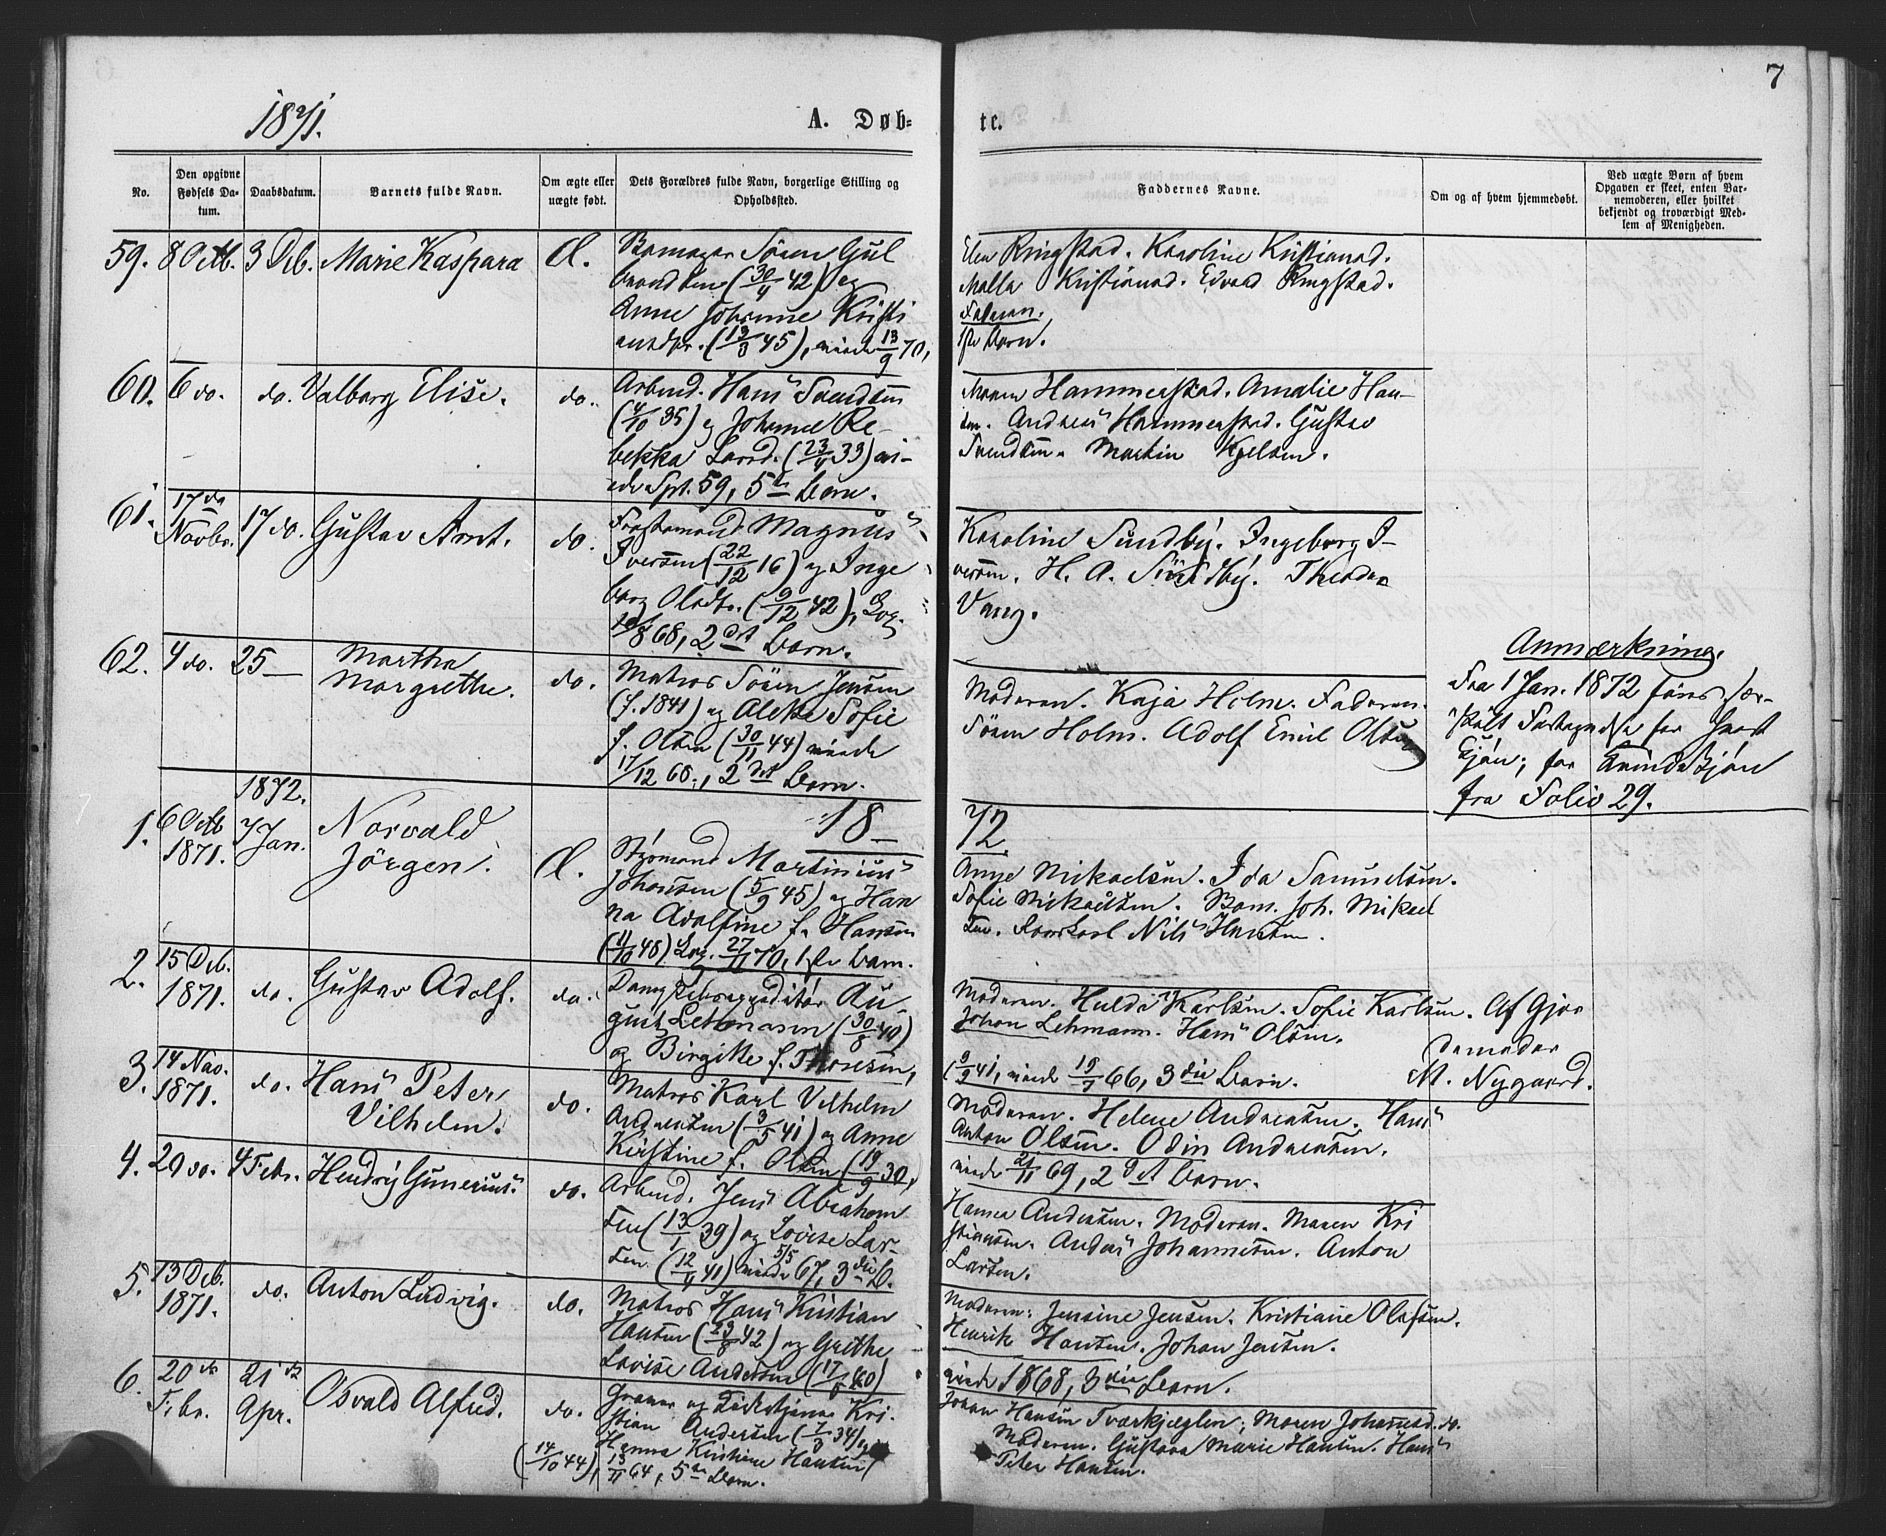 7
1871.
A. Døb=
te.
No.
Den opgivne Fødsels Da-tum.
Daabsdatum.
Barnets fulde Navn.
Om ægte eller uægte født.
Dets Forældres fulde Navn, borgerlige Stilling og Opholdssted.
Faddernes Navne.
Om og af hvem hjemmedøbt.
Ved uægte Børn af hvem Opgaven er skeet, enten Bar-nemoderen, eller hvilket bekjendt og troværdigt Med-lem af Menigheden.
59. 8 Octb. 3 Db. Marie Kaspara Æ.
Søren Gul
brandsen (30/4 42) og
Anne Johanne Kristi
ansdtr. (13/8 45), viede 13/9 70,
Elen Ringstad. Karoline Kristiansd.
Malla Kristiansd. Edvard Ringstad.
Faderen.
1ste Barn.
60. 6 do. do. Valborg Elise. do.
Arbmd. Hans Svendsen
(4/10 35) og Johanne Re-
bekka Larsd. (23/4 33) vi-
ede Spt. 59, 5te Barn.
Maren Hammerstad. Amalie Han-
sen. Andreas Hammerstad. Gustav
Svendsen. Martin Kjelsen.
61. 17de Novbr. 17 do. Gustav Arnt. do.
Magnus
Iversen (22/12 16) og Inge
borg Olsdtr. (9/12 42),
68, 2det Barn.
Karoline Sundby. Ingeborg I-
versen. H. A. Sundby. Theodor
Vang.
62. 4 do. 25 — Martha Margrethe. do.
Matros Søren Jensen
(f. 1841) og Sofie
f. Olsen (30/11 44) viede
17/12 68., 2det Barn.
Moderen. Kaja Holm. Faderen.
Søren Holm. Adolf Emil Olsen
Anmærkning.
Fra 1 Jan. 1872 føres sær-
skilt for hvert
Kjøn; for Kvindekjøn
fra Folio 29.
1872.
18—
72.
1. 6 Octb 1871. 7 Jan. Norvald Jörgen. Æ.
Styrmand Martinius
Johansen (5/9 45) og Han
na Adolfine f. Hansen
(11/10 48) 27/11 70, 1ste Barn.
Anne Mikaelsen. Ida Samuelsen.
Sofie Mikaelsen. Joh. Mikael
sen. Nils Hansen.
2. 15 Db. 1871. do. Gustav Adolf. do.
Au-
gust Lehmann (30/8 40)
og Birgitte f. Thoresen,
Moderen. Hulda Karlsen. Sofie Karlsen.
Johan Lehmann. Hans Olsen.
(9/9 41, viede 19/7 66, 3die Barn.
Af Gjor
demoder
M. Nygaard.
3. 14 Nov. 1871. do. Hans Peter Vilhelm. do.
Matros Karl Vilhelm
Andreasen (3/5 41) og Anne
Kirstine f. Olsen (19/9 30,
Moderen. Helene Andreasen. Hans
Anton Olsen. Odin Andreasen.
viede 21/11 69, 2det Barn.
4. 29 do. 4 Febr. Hendrÿ Gunerius. do.
Arbmd. Jens Abraham
sen (13/1 39) og Lovise Lar-
sen (12/4 41) viede 5/5 67, 3die B.
Hanna Andersen. Moderen. Maren Kri
stiansen. Johannesen. Anton
Larsen.
5. 13 Db. 1871. do. Anton Ludvig. do.
Matros Hans Kristian
Hansen (23/8 42) og Grethe
Lovise Andersen (17/8 40)
Moderen. Jensine Jensen. Kristiane Olafsen.
Henrik Hansen. Johan Jensen.
viede 1868, 3die Barn.
6. 20de Febr. 21de Apr. Osvald Alfred. do.
Kri-
stian Andersen (7/8 34) og
Hanna Kristine Hansen
(14/10 44), 13/11 64, 5te Barn.
Johan Hansen Tværkjeglen; Maren Johannesd. do.
Moderen. Gustava Marie Hansen. Hans
Peter Hansen.